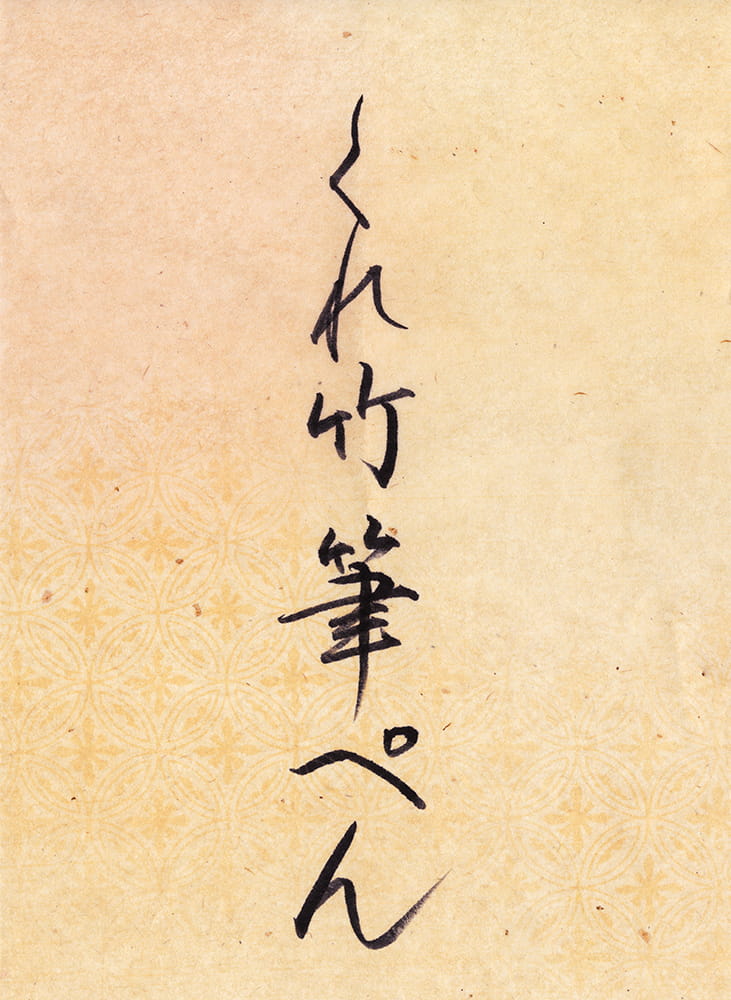 くれ竹筆ぺん